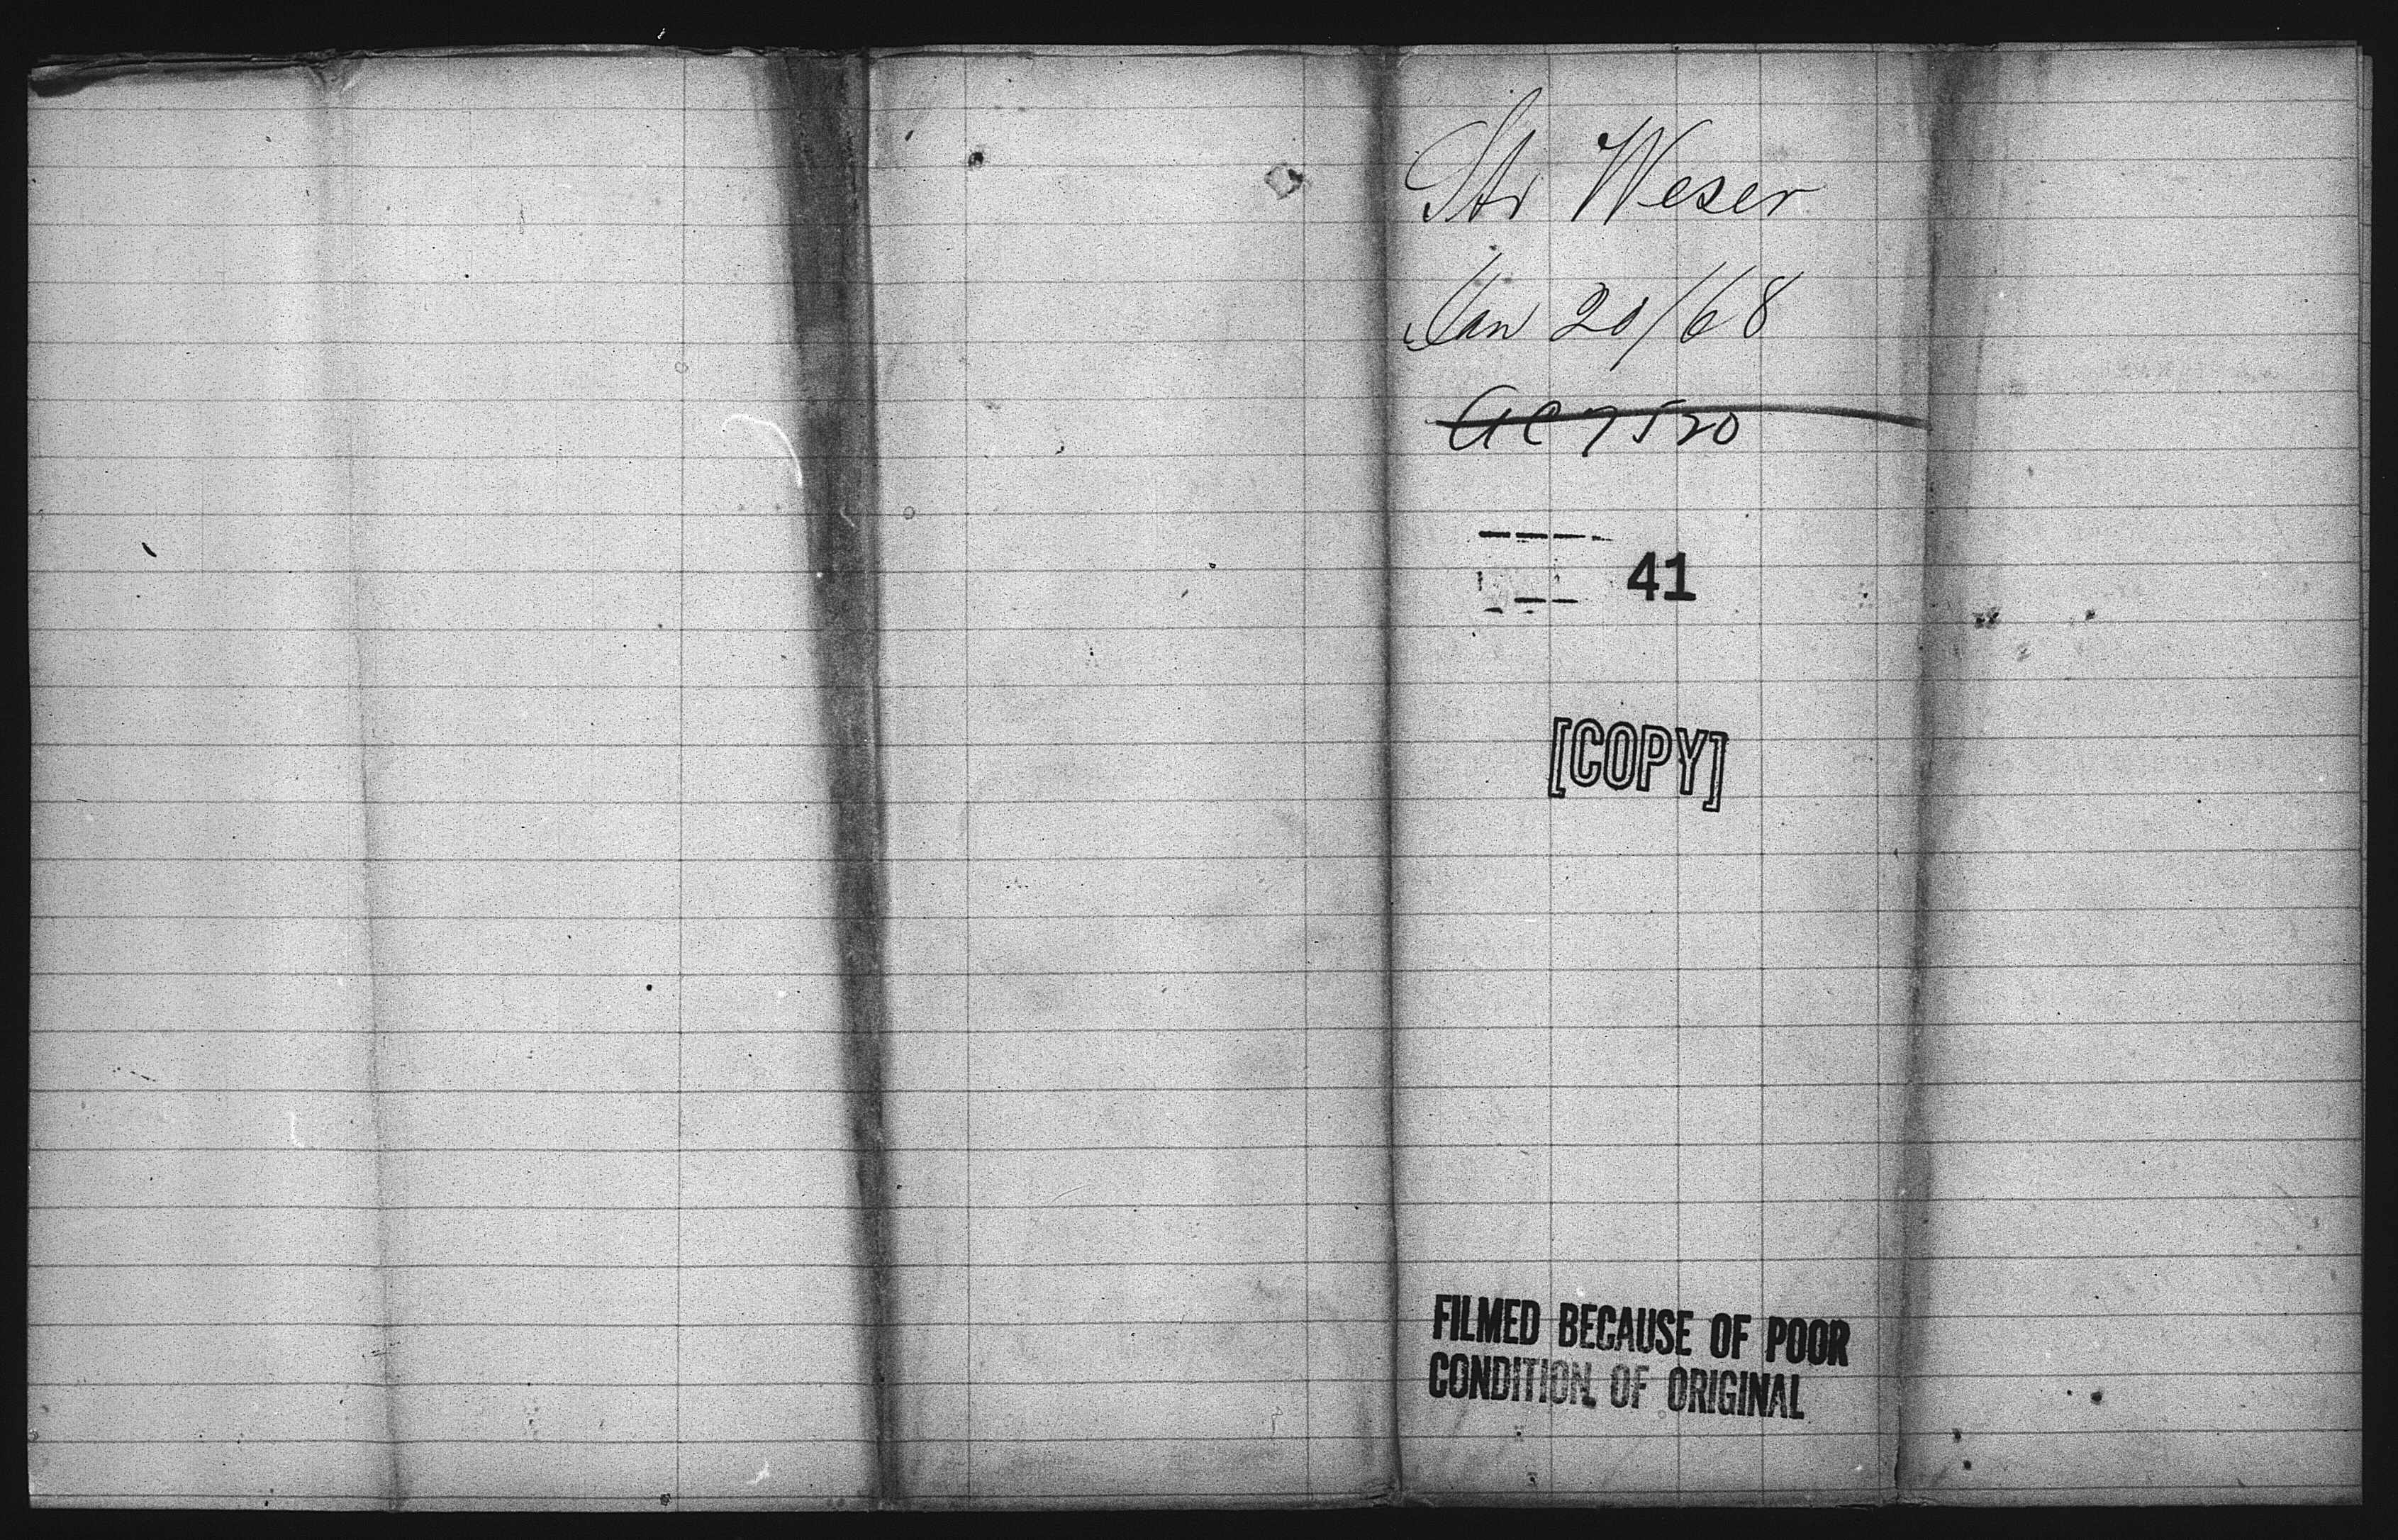 Str Weser
Jan 20/68
41
[COPY]
FILMED BECAUSE OF POOR
CONDITION OF ORIGINAL